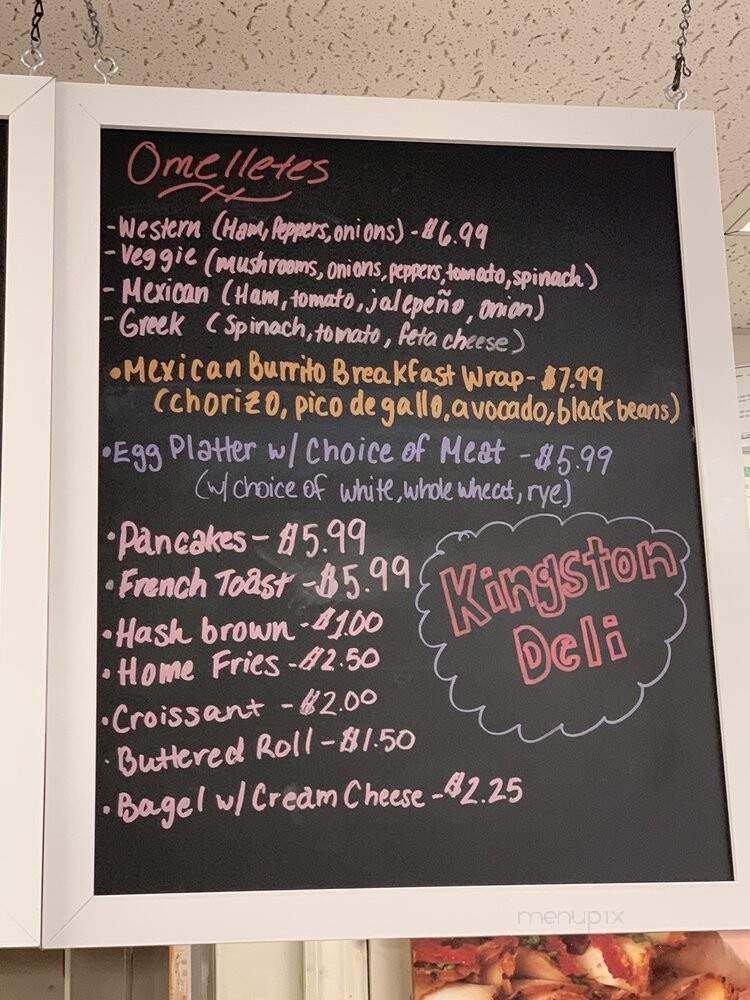 Omelletes
-Western (Ham, Peppers, onions) - $6.99
-Veggie (mushrooms, onions, peppers, tomato, spinach)
-Mexican (Ham, tomato, jalepeño, onion)
-Greek (Spinach, tomato, feta cheese)
•Mexican Burrito Breakfast Wrap - $7.99
(chorizo, pico de gallo, avocado, black beans)
•Egg Platter w/ Choice of Meat - $5.99
(w/ choice of white, whole wheat, rye)
•Pancakes - $5.99
•French Toast - $5.99
•Hash brown - $1.00
•Home Fries - $2.50
•Croissant - $2.00
•Buttered Roll - $1.50
•Bagel w/ Cream Cheese - $2.25
Kingston
Deli
menupix